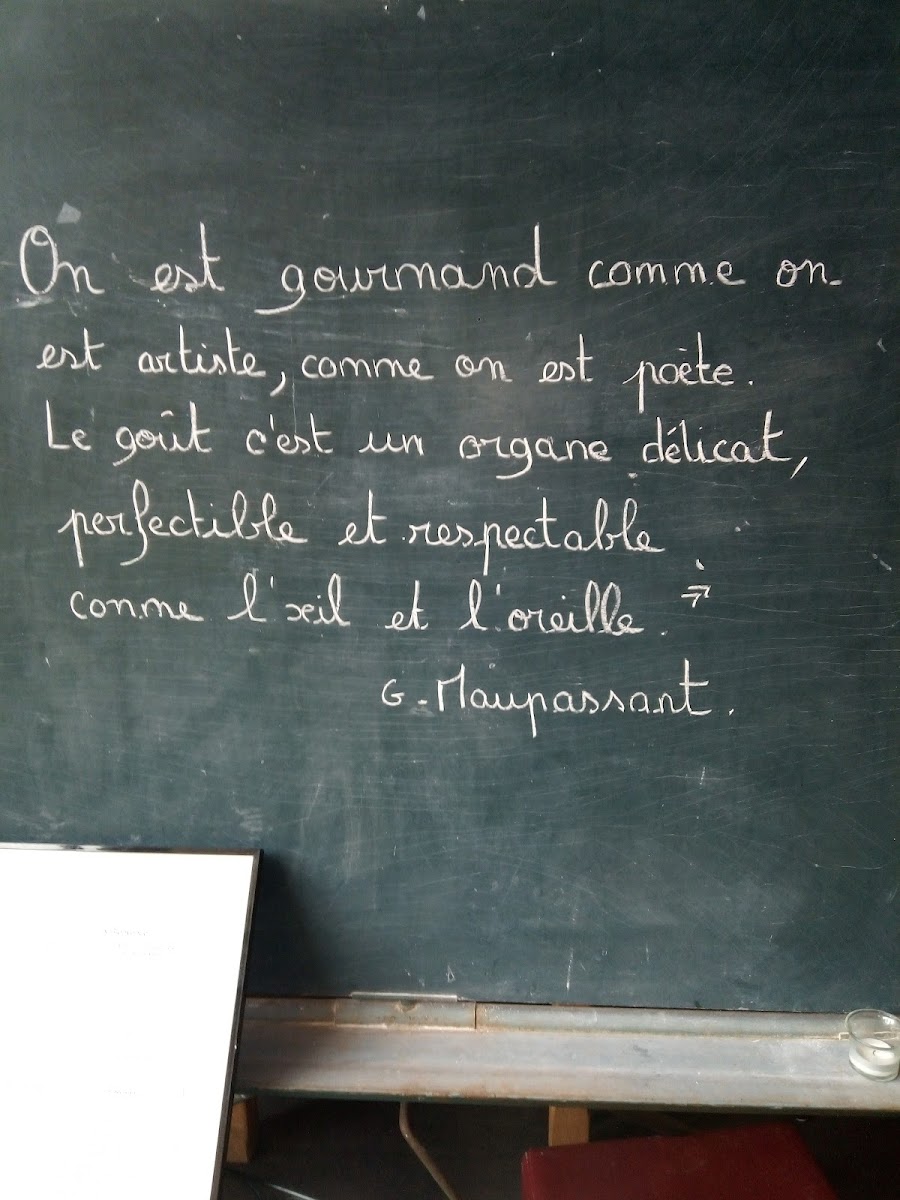 On est gourmand comme on
est artiste, comme on est poète.
Le goût c'est un organe délicat,
perfectible et respectable
comme l'œil et l'oreille. »
G. Maupassant.